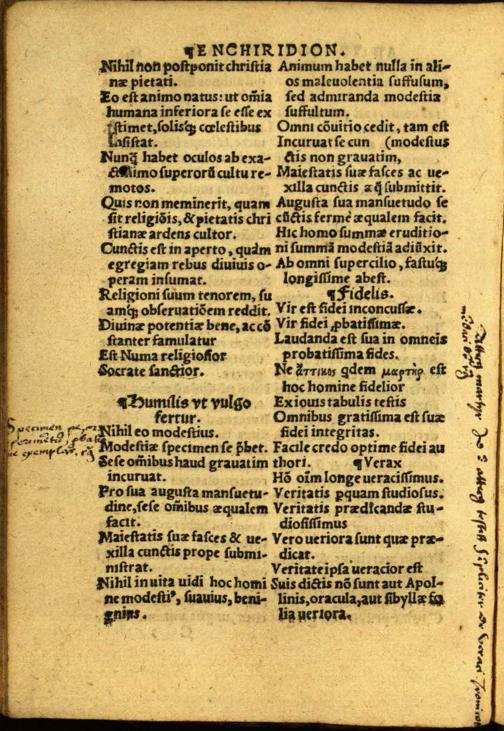 ¶ENCHIRIDION.
Nihil non postponit christia
næ pietati.
Eo est animo natus: ut om̄ia
humana inferiora se esse ex
stimet, solisq̃ cœlestibus
insistat.
Nunq̃ habet oculos ab exa-
ctissimo superorū cultu re-
motos.
Quis non meminerit, quam
sit religiōis, & pietatis chri
stianæ ardens cultor.
Cunctis est in aperto, quàm
egregiam rebus diuiuis o-
peram insumat.
Religioni suum tenorem, su
amq̃ obseruatiōem reddit.
Diuinæ potentiæ bene, ac cō
stanter famulatur
Est Numa religiosior
Socrate sanctior.
¶Humilis vt vulgo
fertur.
Nihil eo modestius.
Modestiæ specimen se p̄bet.
Sese om̄ibus haud grauatim
incuruat.
Pro sua augusta mansuetu-
dine, sese om̄ibus æqualem
facit.
Maiestatis suæ fasces & ue-
xilla cunctis prope submi-
nistrat.
Nihil in uita uidi hoc homi
ne modestiꝰ, suauius, beni-
gnius.
Animum habet nulla in ali-
os maleuolentia suffusum,
sed admiranda modestia
suffultum.
Omni cōuitio cedit, tam est
Incuruat se cun (modestus
ctis non grauatim,
Maiestatis suæ fasces ac ue-
xilla cunctis æq̃ submittit.
Augusta sua mansuetudo se
cūctis ferme æqualem facit.
Hic homo summæ eruditio-
ni summā modestiā adiūxit.
Ab omni supercilio, fastuq̃
longissime abest.
¶Fidelis.
Vir est fidei inconcussæ.
Vir fidei ꝓbatissimæ.
Laudanda est sua in omneis
probatissima fides.
Ne ἄττικος qdem μαρτὴρ est
hoc homine fidelior
Exiouis tabulis testis
Omnibus gratissima est suæ
fidei integritas.
Facile credo optime fidei au
thori. ¶Verax
Hō oīm longe ueracissimus.
Veritatis ꝑquam studiosus.
Veritatis prædicandæ stu-
diosissimus
Vero ueriora sunt quæ præ-
dicat.
Veritate ipsa ueracior est
Suis dictis nō sunt aut Apol-
linis, oracula, aut sibyllæ fo
lia ueriora.
Specimen